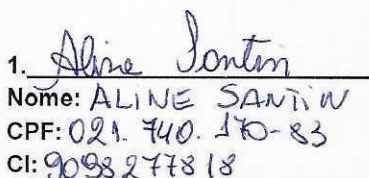 1. Aline Santin
Nome: ALINE SANTIN
CPF: 021.740.170-83
CI: 9098277818